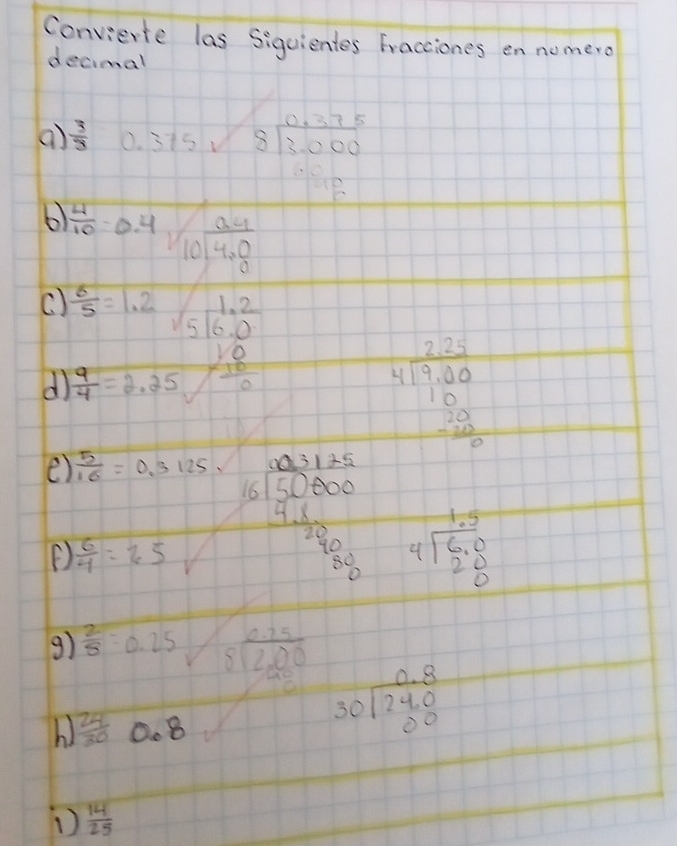 Convierte las Siguientes Fracciones en numero
decimal
a) 3/8 0.375 ✓ 0.375
8 | 3.000
60
40
b) 4/10 = 0.4 ✓ 0.4
10 | 4.0
0
c) 6/5 = 1.2 ✓ 1.2
5 | 6.0
10
10
0
d) 9/4 = 2.25 ✓ 2.25
4 | 9.00
10
20
-20
0
e) 5/16 = 0.3125 ✓ 0.3125
16 | 50000
4.8
20
40
80
0
f) 6/4 = 1.5 ✓ 1.5
4 | 6.0
20
0
g) 2/8 = 0.25 ✓ 0.25
8 | 2.00
40
0
h) 24/30 0.8 ✓ 0.8
30 | 24.0
00
i) 14/25